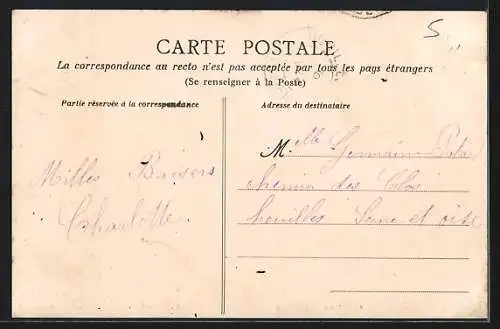 5
CARTE POSTALE
La correspondance au recto n'est pas acceptée par tous les pays étrangers
(Se renseigner à la Poste)
Partie réservée à la correspondance
Adresse du destinataire
Milles Baisers
Charlotte
Melle Germaine
chemin des Clos
houilles Seine et oise